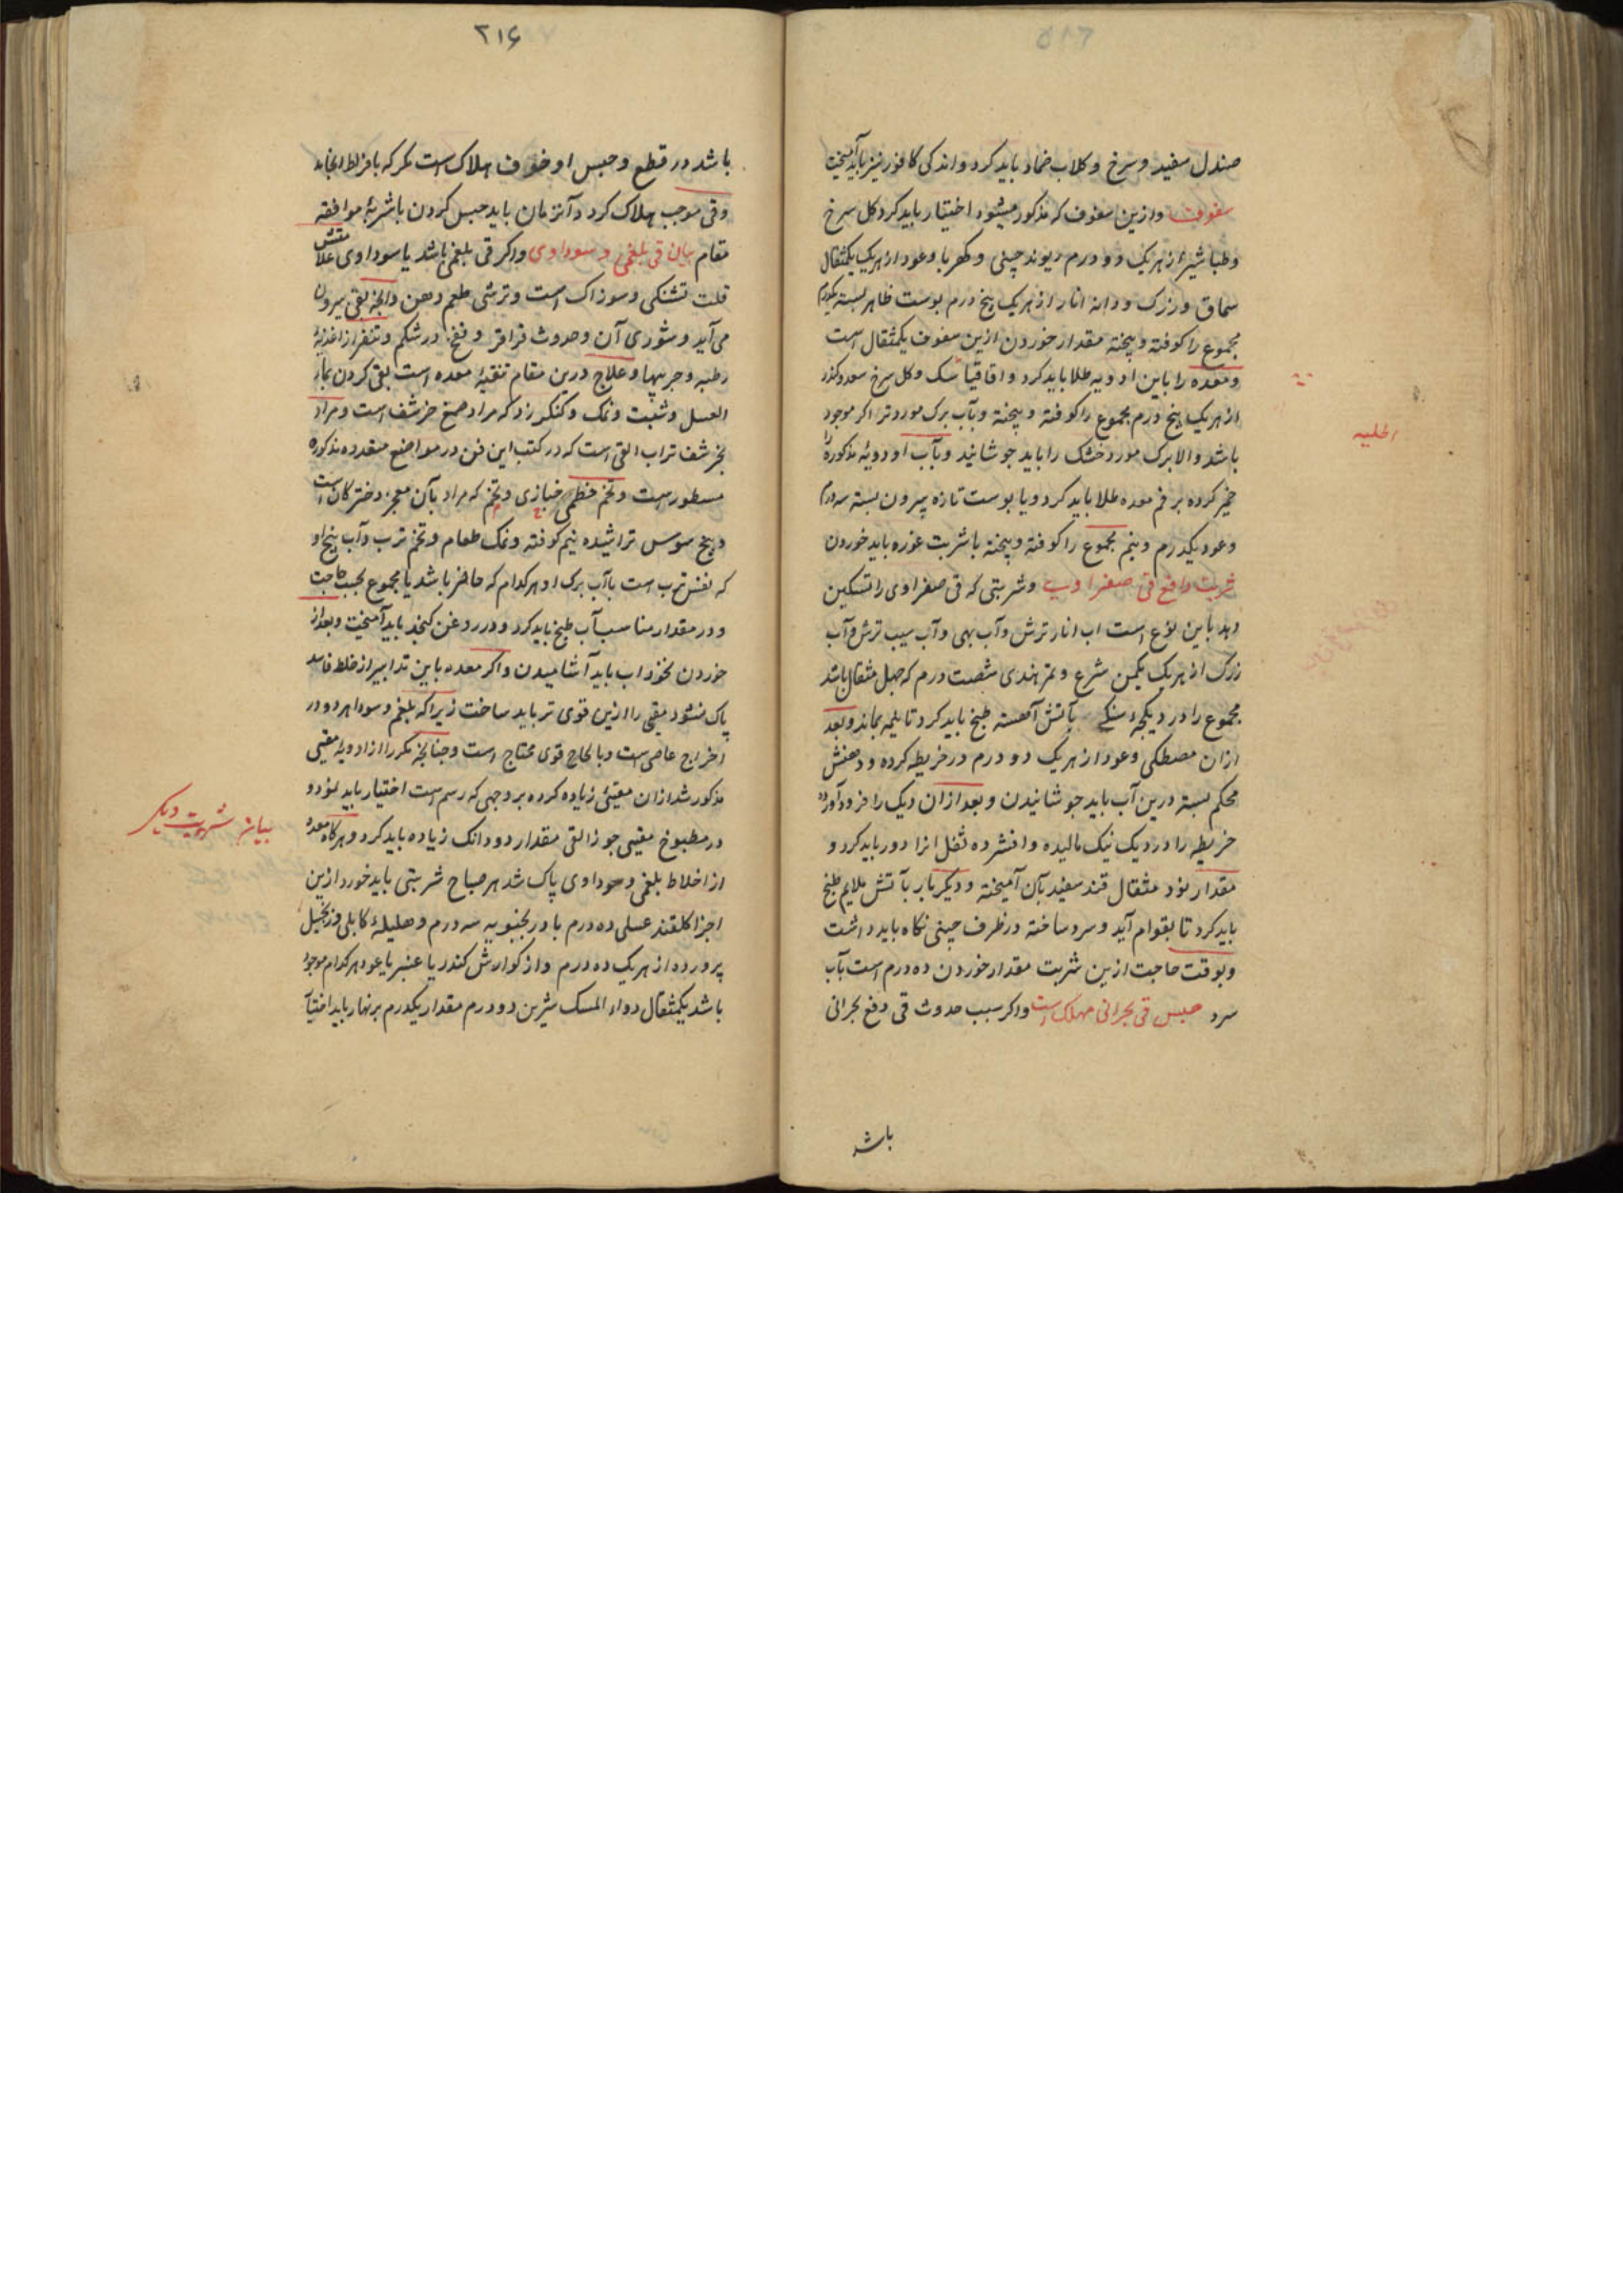 صندل سفید و سرخ و کلاب ضماد باید کرد و اندکی کافور نیز باید آمیخت
سفوف وازین سفوف که مذکور میشود اختیار باید کرد کل سرخ
وطباشیر از هریک دو درم ریوند چینی و کهربا وعود از هریک یکمثقال
سماق و زرک و دانه انار از هریک پنج درم پوست ظاهر پسته یکدرم
مجموع را کوفته و پیخته مقدار خوردن ازین سفوف یکمثقال است
ومعده را باین ادویه طلا باید کرد و اقاقیا سک و کل سرخ سعد و کندر
از هریک پنج درم مجموع را کوفته و پیخته و بآب برک مورد تر اکر موجود
باشد والا برک مورد خشک را باید جوشانید و بآب او دویهٔ مذکوره را
خمیر کرده بر فم معده طلا باید کرد و یا پوست تازه بیرون پسته سه درم
وعود یکدرم و نیم مجموع را کوفته و پیخته با شربت غوره باید خوردن
شربت دافع قی صفراوی وشربتی که قی صفراوی را تسکین
دهد باین نوع است اب انار ترش وآب بهی وآب سیب ترش وآب
زرک از هریک یکمن شرع و تمر هندی شصت درم که چهل مثقال باشد
مجموع را در دیکچه سنکی بآتش آهسته طبخ باید کرد تا نیمه بماند و بعد
ازان مصطکی وعود از هریک دو درم در خریطه کرده و دهنش
محکم بسته درین آب باید جوشانیدن و بعد ازان دیک را فرود آورده
خریطه را در دیک نیک مالیده و افشرده ثفل انرا دور باید کرد و
مقدار نود مثقال قند سفید بآن آمیخته و دیکر بار بآتش ملایم طبخ
باید کرد تا بقوام آید و سرد ساخته در ظرف چینی نکاه باید داشت
وبوقت حاجت ازین شربت مقدار خوردن ده درم است بآب
سرد حبس قی بحرانی مهلک است واکر سبب حدوث قی دفع بحرانی
باشد
۲۱۶
باشد در قطع و حبس او خوف هلاک است مکر که بافراط انجامد
وقی موجب هلاک کردد آنزمان باید حبس کردن باشربهٔ موافقه
مقام بیان قی بلغمی و سوداوی واکر قی بلغمی باشد یا سوداوی علامتش
قلت تشنکی وسوزاک است وترشی طعم دهن وانچه بقی بیرون
می آید و شوری آن و حدوث قراقر و نفخ در شکم و تنفر از اغذیهٔ
رطبه و چربیها وعلاج درین مقام تنقیهٔ معده است بقی کردن بماء
العسل و شبت و نمک و کنکرزد که مراد صمغ خرشف است و مراد
بخرشف تراب القی است که در کتب این فن در مواضع متعدده مذکوره
مسطور است وتخم خطمی خبازی وتخم که مراد بآن معجز دخترکان است
وبیخ سوس تراشیده نیم کوفته و نمک طعام وتخم ترب وآب بیخ او
که نفس ترب است با آب برک او هرکدام که حاضر باشد یا مجموع بحسب حاجت
و در مقدار مناسب آب طبخ باید کرد و در روغن کنجد باید آمیخت و بعد از
خوردن نخوداب باید آشامیدن واکر معده باین تدابیر از خلط فاسد
پاک نشود مقی را ازین قوی تر باید ساخت زیرا که بلغم و سودا هر دو در
اخراج عاصی است و بالحاح قوی محتاج است و چنانچه مکررا از ادویهٔ مقیی
مذکور شد ازان مقیی زیاده کرده بروجهی که رسم است اختیار باید نمود و
در مطبوخ مقیی جوز القی مقدار دو دانک زیاده باید کرد و هرکاه معده
بیان شربت دیکر
از اخلاط بلغمی و سوداوی پاک شد هر صباح شربتی باید خورد ازین
اجزا کلقند عسلی ده درم بادرنجبویه سه درم وهلیلهٔ کابلی وزنجبیل
پرورده از هریک ده درم واز کوارش کندر یا عنبر یا عود هرکدام موجود
باشد یکمثقال دواء المسک شیرین دو درم مقدار یکدرم برنهار باید اختیا